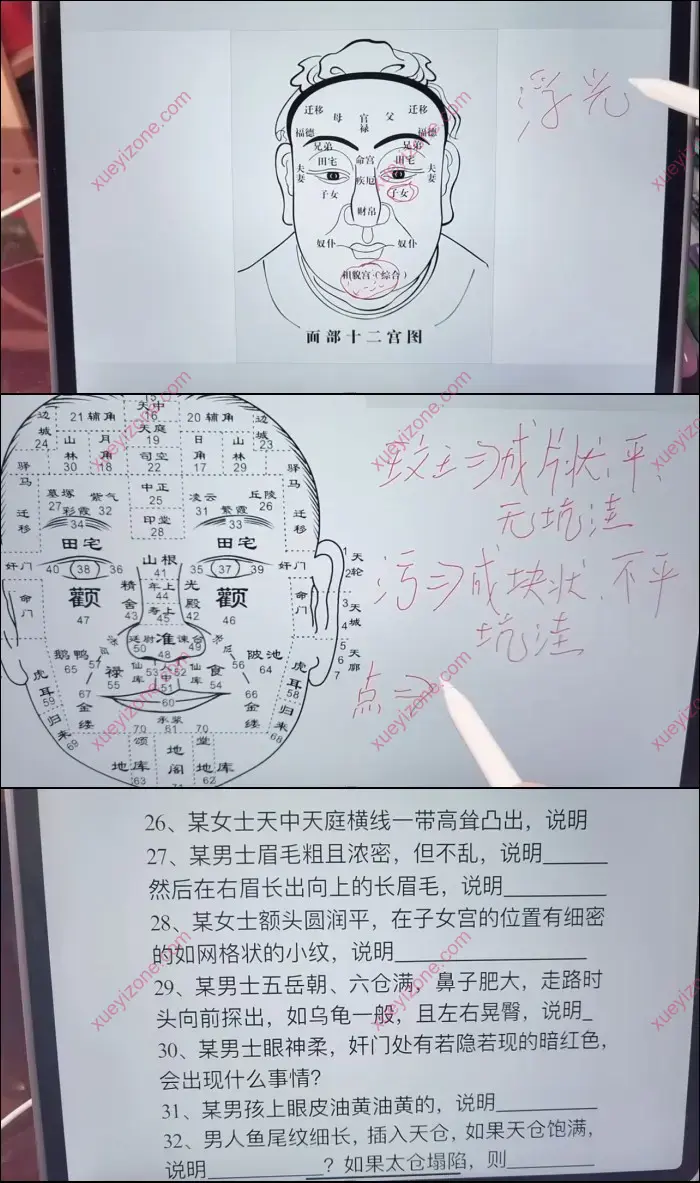 浮光
迁移 母 官禄 父 迁移
福德 福德
兄弟 兄弟
夫妻 田宅 命宫 田宅 夫妻
疾厄
子女 子女
财帛
奴仆 奴仆
相貌宫(综合)
面部十二宫图
xueyizone.com
xueyizone.com
15
天中
16
边城 24
21 辅角
20 辅角
边城 23
天庭
19
山林 30
月角 18
司空
22
日角 17
山林 29
驿马
驿马
中正
25
墓塚 27
紫气 32
彩霞
34
凌云 31
紫霞
33
丘陵 26
迁移
迁移
印堂
28
田宅
田宅
山根
41
奸门 40 38 36
35 37 39 奸门
命门
命门
颧
47
颧
46
精舍 42
光殿 43
年上
44
寿上
45
廷尉 50
准
48
谏台 49
鹅鸭 65
陂池 64
57
56
禄 55
仙库 53
人中
51
仙库 52
食 54
虎耳 59
虎耳 58
67
66
60
金缕
金缕
归来 69
归来 68
承浆
70 61 70
颂堂
地库 63
地阁
71
地库 62
1 天轮
2
3 天城
4
5 天廓
6
7
蚊⇒成片状,平、
无坑洼
污⇒成块状 不平
坑洼
点⇒
xueyizone.com
xueyizone.com
xueyizone.com
26、某女士天中天庭横线一带高耸凸出，说明
27、某男士眉毛粗且浓密，但不乱，说明______
然后在右眉长出向上的长眉毛，说明________
28、某女士额头圆润平，在子女宫的位置有细密
的如网格状的小纹，说明________________
29、某男士五岳朝、六仓满，鼻子肥大，走路时
头向前探出，如乌龟一般，且左右晃臀，说明_
30、某男士眼神柔，奸门处有若隐若现的暗红色，
会出现什么事情？
31、某男孩上眼皮油黄油黄的，说明_________
32、男人鱼尾纹细长，插入天仓，如果天仓饱满，
说明__________？如果太仓塌陷，则________
xueyizone.com
xueyizone.com
xueyizone.com